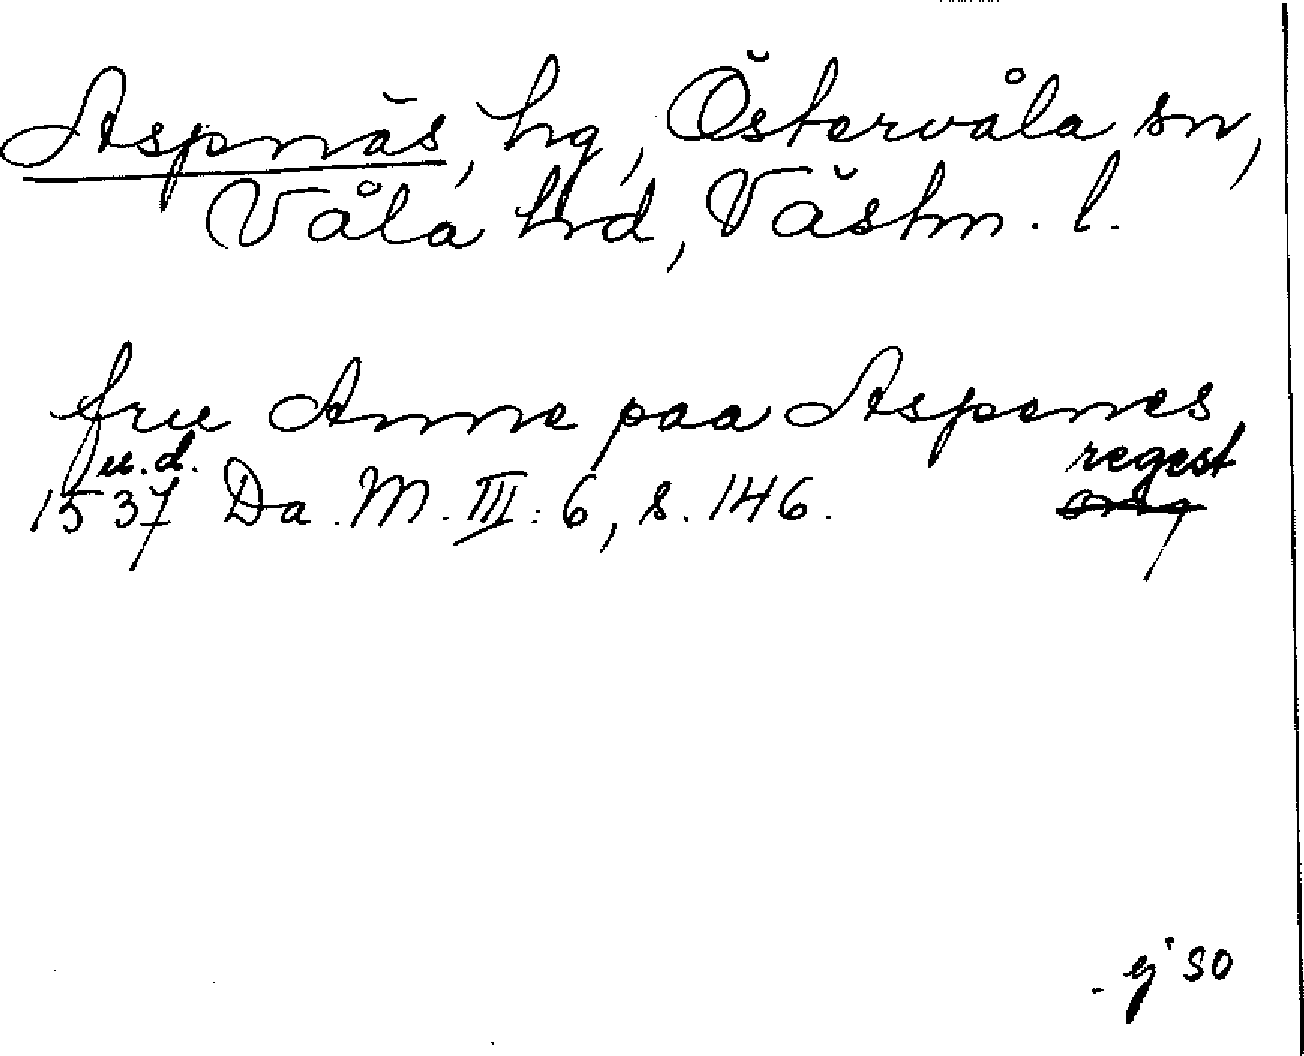 Aspnäs, hg, Östervåla sn,
Våla hrd, Västm. l.
fru Anne paa Aspenes
u.d. regest
1537 Da. M. III: 6, s. 146. orig
ej SO